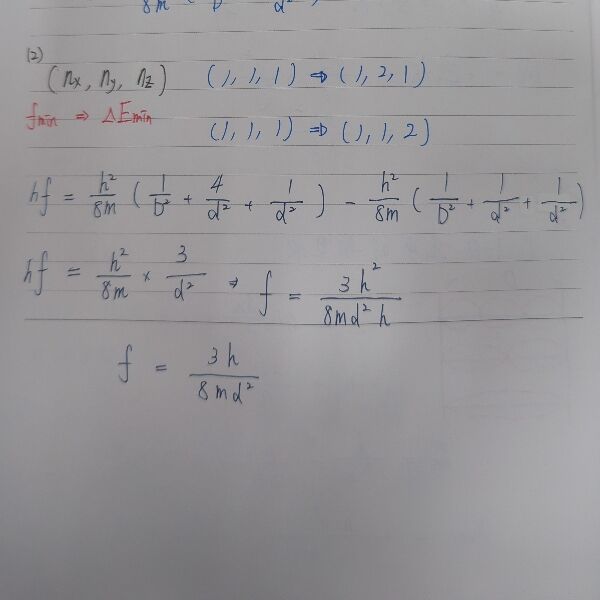 8m d²
(2)
(nx, ny, nz) (1, 1, 1) ⇒ (1, 2, 1)
fmin ⇒ ΔEmin
(1, 1, 1) ⇒ (1, 1, 2)
hf = h²/8m (1/D² + 4/d² + 1/d²) - h²/8m (1/D² + 1/d² + 1/d²)
hf = h²/8m × 3/d² → f = 3h²/8md²h
f = 3h/8md²